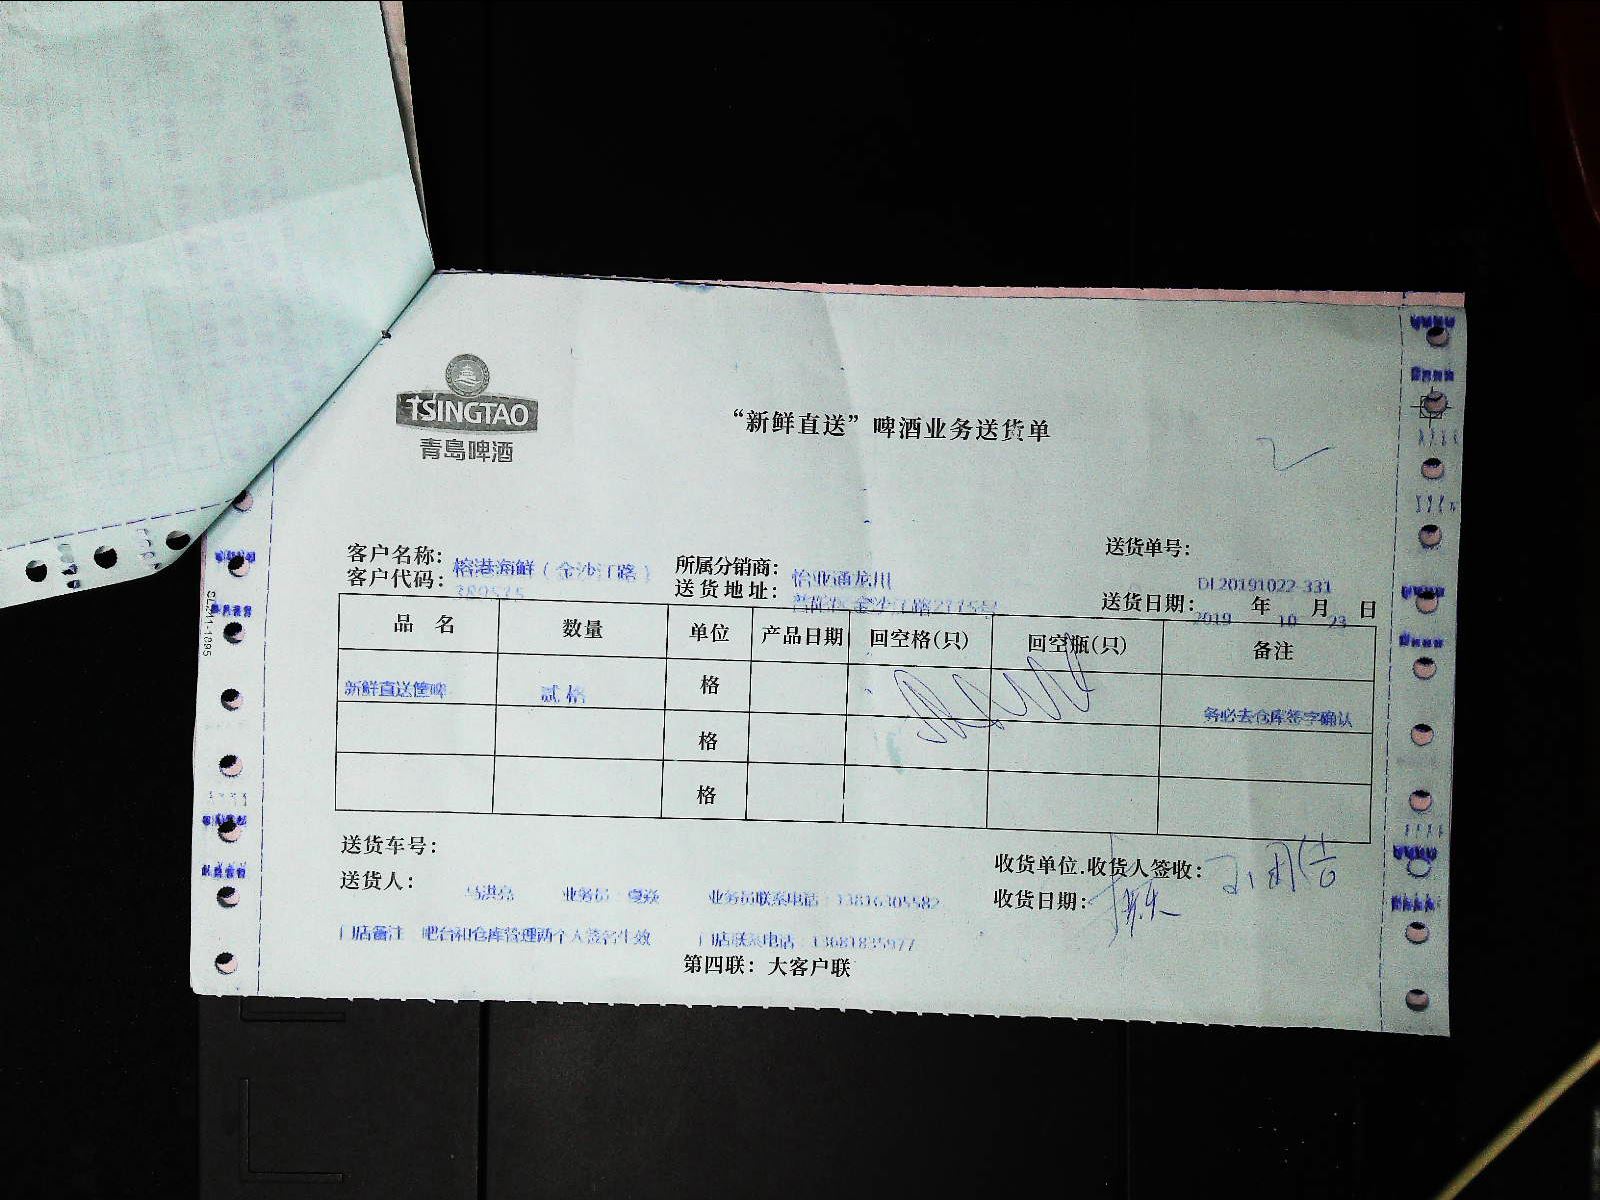 TSINGTAO
青島啤酒
“新鲜直送”啤酒业务送货单
客户名称: 榕港海鲜(金沙江路) 所属分销商: 怡亚通龙川 送货单号: DL20191022-331
客户代码: 送货地址: 送货日期: 2019 年 10 月 23 日
品名 数量 单位 产品日期 回空格(只) 回空瓶(只) 备注
新鲜直送筐啤 贰格 格 务必去仓库签字确认
格
格
送货车号: 收货单位.收货人签收:
送货人: 马洪亮 业务员:夏焱 业务员联系电话:13816305582 收货日期:
门店备注 吧台和仓库管理两个人签名生效 门店联系电话:13681835977
第四联:大客户联